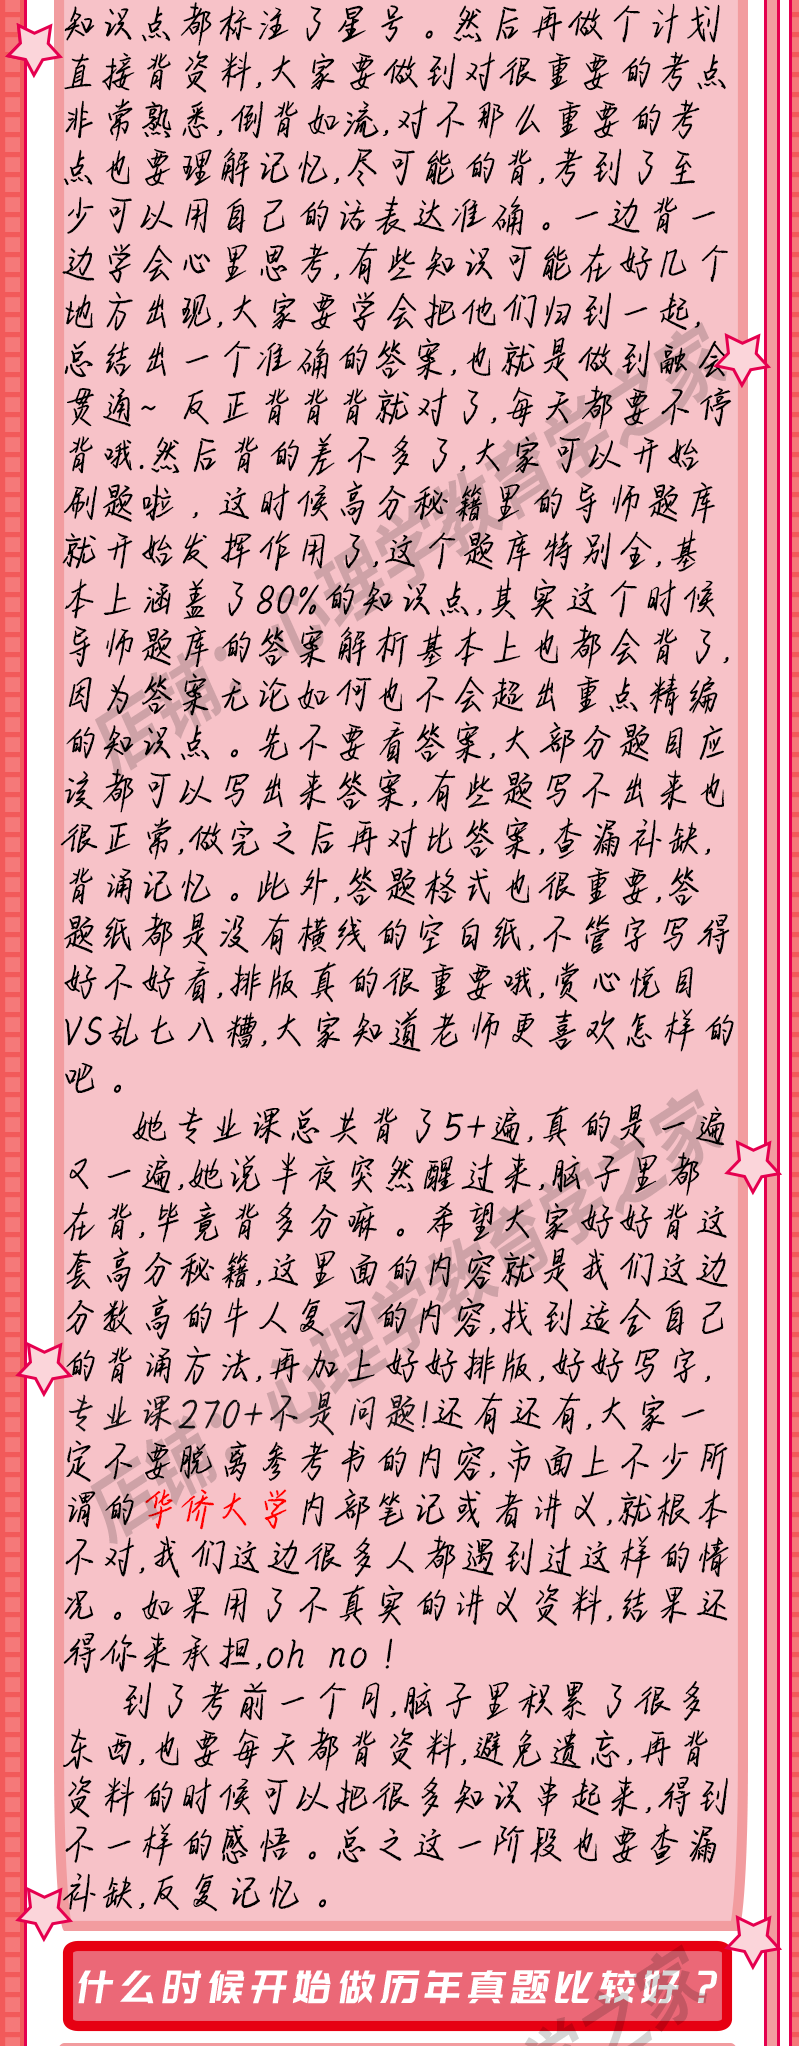 知识点都标注了星号。然后再做个计划
直接背资料,大家要做到对很重要的考点
非常熟悉,倒背如流,对不那么重要的考
点也要理解记忆,尽可能的背,考到了至
少可以用自己的话表达准确。一边背一
边学会心里思考,有些知识可能在好几个
地方出现,大家要学会把他们归到一起,
总结出一个准确的答案,也就是做到融会
贯通~ 反正背背背就对了,每天都要不停
背哦.然后背的差不多了,大家可以开始
刷题啦，这时候高分秘籍里的导师题库
就开始发挥作用了,这个题库特别全,基
本上涵盖了80%的知识点,其实这个时候
导师题库的答案解析基本上也都会背了,
因为答案无论如何也不会超出重点精编
的知识点。先不要看答案,大部分题目应
该都可以写出来答案,有些题写不出来也
很正常,做完之后再对比答案,查漏补缺,
背诵记忆。此外,答题格式也很重要,答
题纸都是没有横线的空白纸,不管字写得
好不好看,排版真的很重要哦,赏心悦目
VS乱七八糟,大家知道老师更喜欢怎样的
吧。
她专业课总共背了5+遍,真的是一遍
又一遍,她说半夜突然醒过来,脑子里都
在背,毕竟背多分嘛。希望大家好好背这
套高分秘籍,这里面的内容就是我们这边
分数高的牛人复习的内容,找到适合自己
的背诵方法,再加上好好排版,好好写字,
专业课270+不是问题!还有还有,大家一
定不要脱离参考书的内容,市面上不少所
谓的华侨大学内部笔记或者讲义,就根本
不对,我们这边很多人都遇到过这样的情
况。如果用了不真实的讲义资料,结果还
得你来承担,oh no！
到了考前一个月,脑子里积累了很多
东西,也要每天都背资料,避免遗忘,再背
资料的时候可以把很多知识串起来,得到
不一样的感悟。总之这一阶段也要查漏
补缺,反复记忆。
什么时候开始做历年真题比较好？
店铺：心理学教育学之家
店铺：心理学教育学之家
学之家